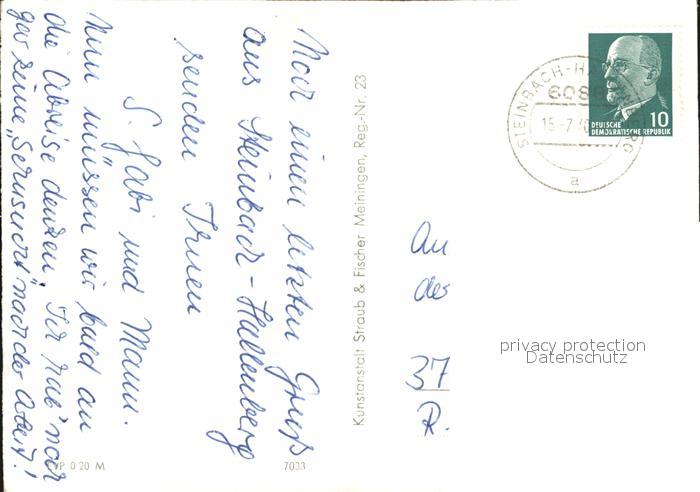 Noch einen letzten Gruß
aus Steinbach-Hallenberg
senden Ihnen
S. Gabi und Mann.
Nun müssen wir bald an
die Abreise denken. Ich hab' noch
gar keine „Sehnsucht" nach der Arbeit!
EVP 0 20 M
7033
Kunstanstalt Straub & Fischer Meiningen, Reg.-Nr. 23
STEINBACH-HALLENBERG
15.-7.
a
DEUTSCHE
DEMOKRATISCHE REPUBLIK
10
An
des
37
R.
privacy protection
Datenschutz